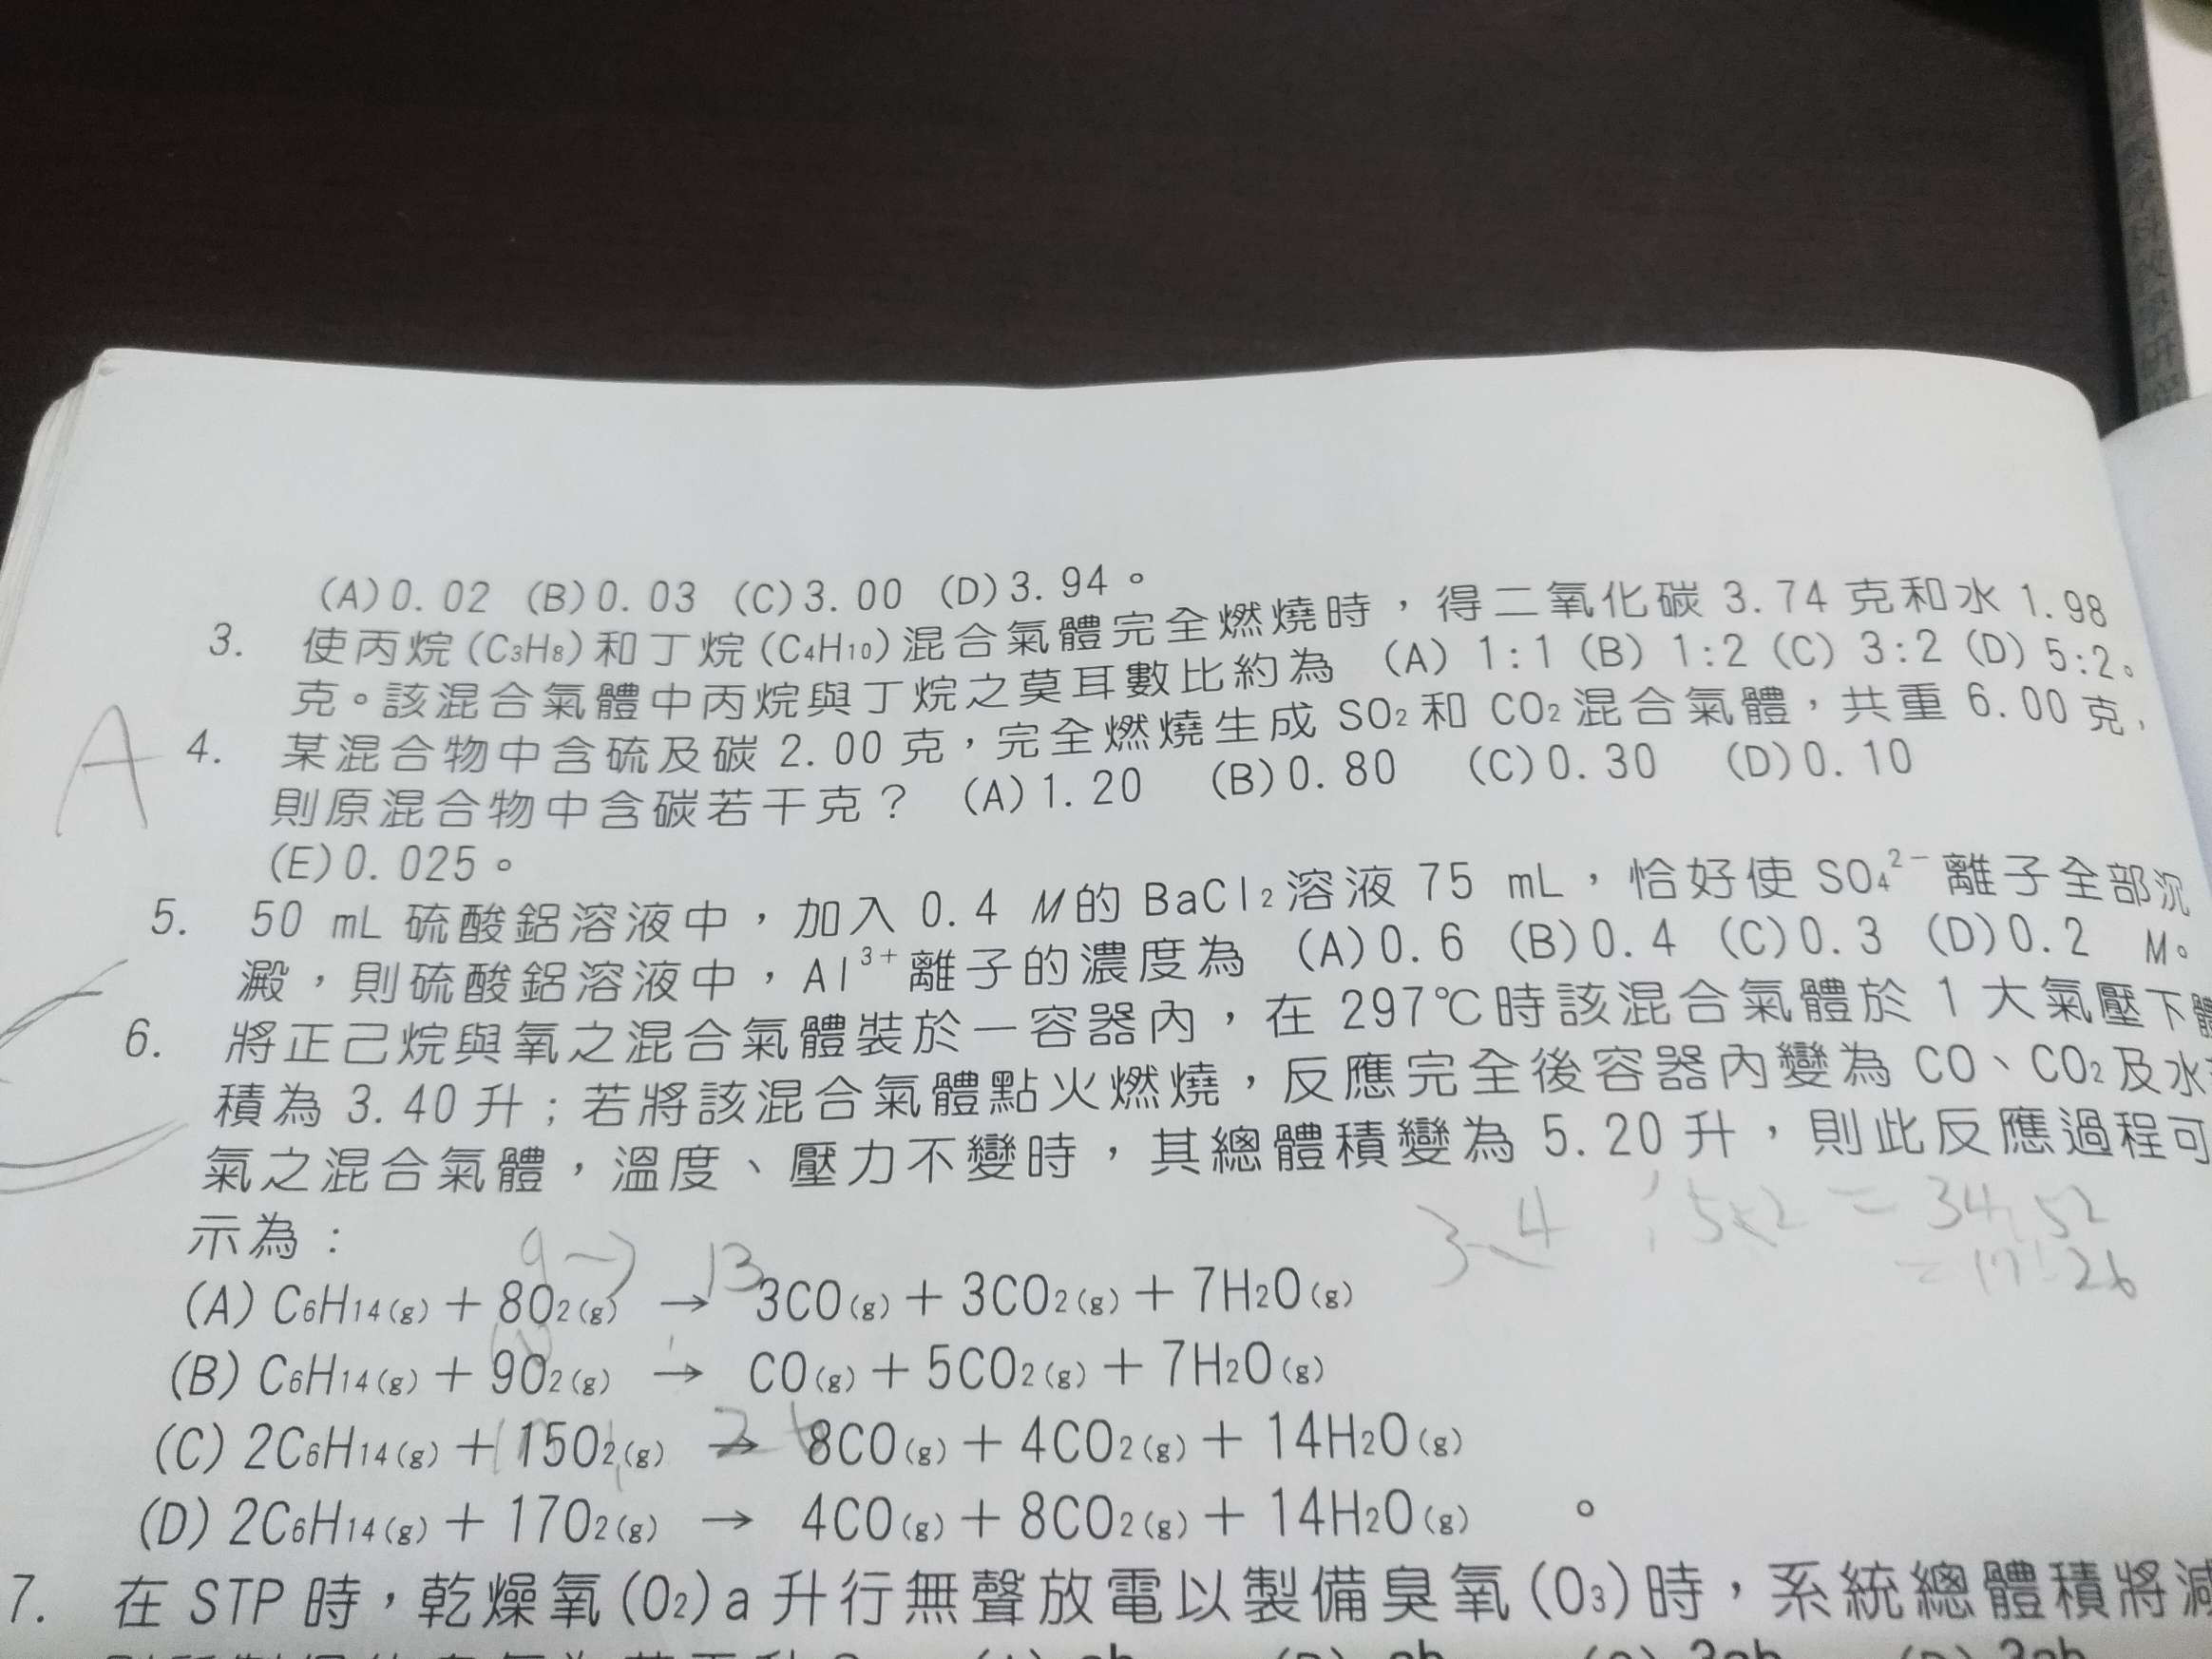 (A)0.02 (B)0.03 (C)3.00 (D)3.94。
3. 使丙烷(C₃H₈)和丁烷(C₄H₁₀)混合氣體完全燃燒時，得二氧化碳 3.74 克和水 1.98
克。該混合氣體中丙烷與丁烷之莫耳數比約為 (A) 1:1 (B) 1:2 (C) 3:2 (D) 5:2。
A
4. 某混合物中含硫及碳 2.00 克，完全燃燒生成 SO₂和 CO₂混合氣體，共重 6.00 克，
則原混合物中含碳若干克？ (A)1.20 (B)0.80 (C)0.30 (D)0.10
(E)0.025。
5. 50 mL 硫酸鋁溶液中，加入 0.4 M的 BaCl₂溶液 75 mL，恰好使 SO₄²⁻離子全部沉
澱，則硫酸鋁溶液中，Al³⁺離子的濃度為 (A)0.6 (B)0.4 (C)0.3 (D)0.2 M。
6. 將正己烷與氧之混合氣體裝於一容器內，在 297℃時該混合氣體於 1 大氣壓下體
積為 3.40 升；若將該混合氣體點火燃燒，反應完全後容器內變為 CO、CO₂及水
氣之混合氣體，溫度、壓力不變時，其總體積變為 5.20 升，則此反應過程可
示為：
3.4 : 5.2 = 34:52
= 17:26
9 → 13
(A) C₆H₁₄(g) + 8O₂(g) → 3CO(g) + 3CO₂(g) + 7H₂O(g)
(B) C₆H₁₄(g) + 9O₂(g) → CO(g) + 5CO₂(g) + 7H₂O(g)
26
(C) 2C₆H₁₄(g) + 15O₂(g) → 8CO(g) + 4CO₂(g) + 14H₂O(g)
(D) 2C₆H₁₄(g) + 17O₂(g) → 4CO(g) + 8CO₂(g) + 14H₂O(g) 。
7. 在 STP 時，乾燥氧(O₂)a 升行無聲放電以製備臭氧(O₃)時，系統總體積將減